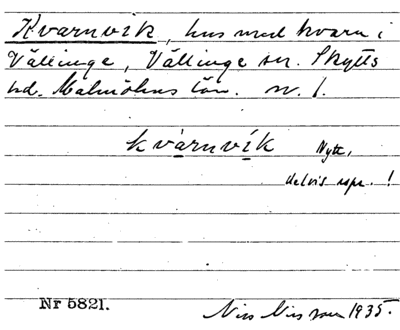 Kvarnvik, hus med kvarn i
Vällinge, Vällinge sn. Skytts
hd. Malmöhus län. nr. 1.
kvarnvík Nytt,
delvis uppr. !
Nr 5821.
Nils Nilsson 1935.